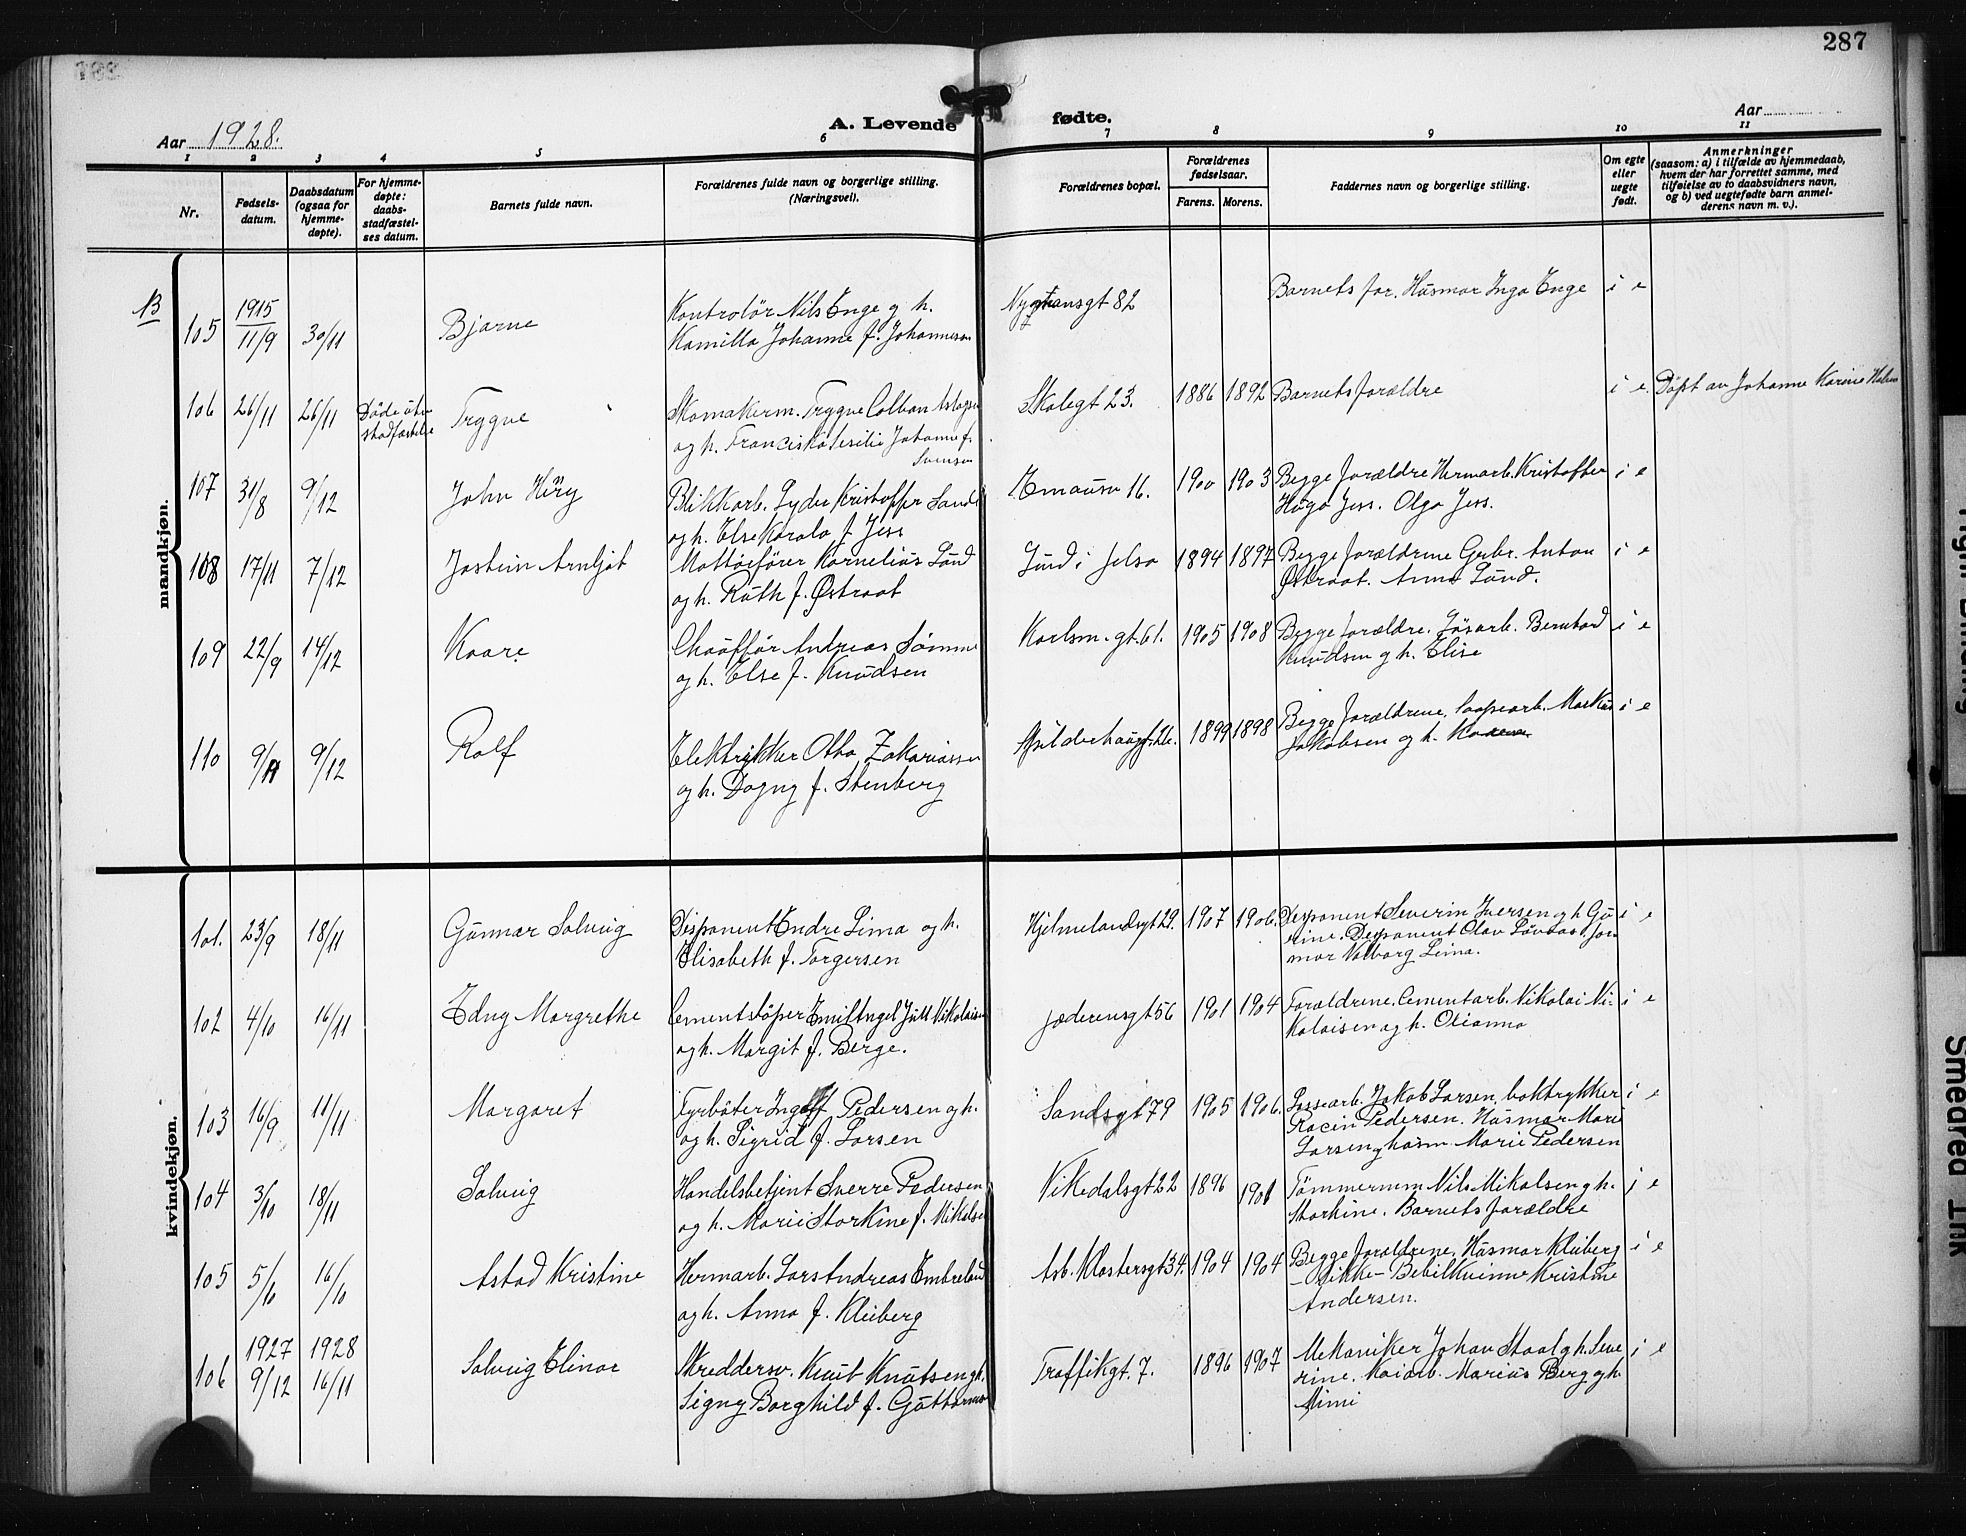 287
Aar 1928.
A. Levende fødte.
Aar
1 2 3 4 5 6 7 8 9 10 11
Nr.
Fødsels-
datum.
Daabsdatum
(ogsaa for
hjemme-
døpte).
For hjemme-
døpte:
daabs-
stadfæstel-
ses datum.
Barnets fulde navn.
Forældrenes fulde navn og borgerlige stilling.
(Næringsvei).
Forældrenes bopæl.
Forældrenes
fødselsaar.
Farens. Morens.
Faddernes navn og borgerlige stilling.
Om egte
eller
uegte
født.
Anmerkninger
(saasom: a) i tilfælde av hjemmedaab,
hvem der har forrettet samme, med
tilføielse av to daabsvidners navn,
og b) ved uegtefødte barn anmel-
derens navn m. v.).
mandkjøn.
B
105 1915 11/9 30/11 Bjarne
Kontrolör Nils Enge g h.
Kamilla Johanne f. Johannesen
gt 82
Barnets for. Husmor Inga Enge i e
106 26/11 26/11 Döde
Trygve
Skomakerm. Trygve Colban
og h. Johanne f.
Svensen
Skolegt 23. 1886 1892 Barnets forældre i e. Döpt av Johanne Karine
107 31/8 9/12 John
Blikkarb. Lyder Kristoffer Sand
og h. Else Karola f. Jess
Emausv 16. 1900 1903 Begge forældre Hermarb. Kristoffer
Hugo Jess. Olga Jess. i e
108 17/11 7/12 Jostein Arnljot
Kornelius Lund
og h. Ruth f. Østraat
Lund i Jelsa 1894 1897 Begge forældrene Grbr. Anton
Østraat. Anna Lund. i e
109 22/9 14/12 Kaare
Chauffør Andreas Sømme
og h. Else f. Knudsen
Karlsm. gt. 61. 1905 1908 Begge forældre. Bernhard
Knudsen g h. Elise i e
110 9/11 9/12 Rolf
Elektrikker Otto Zakariassen
og h. Dagny f. Stenberg
1899 1898 Begge forældrene, Markus
Jakobsen og h. i e
kvindekjøn.
101. 23/9 18/11 Gunnar Solveig
Disponent Endre Lima og h.
Elisabeth f. Torgersen
Hjelmelandsgt 29. 1907 1906. Disponent Severin Iversen g h Gu
rine. Disponent Olav
mor Valborg Lima. i e
102 4/10 16/11 Edny Margrethe
Cementstöper Emil Jull Nikolaisen
og h. Margit f. Berge.
Jæderensgt 56 1901 1904 Forældrene. Cementarb. Nikolai Ni-
kolaisen og h. i e
103 16/9 11/11 Margaret
Fyrböter Ingolf Pedersen g h.
og h. Sigrid f. Larsen
Sandsgt 79 1905 1906. Jakob Larsen, boktrykker
Pedersen. Husmor Marie
Larsen g husm. Marie Pedersen i e
104 3/10 18/11 Solveig
Handelsbetjent Sverre Pedersen
og h. Marie Storkine f. Mikalsen
Vikedalsgt 22 1896 1901 Tömmermm Nils Mikalsen g h.
Storkine. Barnets forældre i e
105 5/10 16/10 Astad Kristine
Hermarb. Lars Andreas
og h. Anna f. Kluberg
Asb. Klostersgt 34. 1904 1904 Begge forældrene. Husmor Kluberg
Kristine
Andersen. i e
106 1927 9/12 1928 16/11 Solveig Elinor
Skreddersv. Knut Knutsen g h.
Signy Borghild f. Guttormsen
Traffikgt. 7. 1896 1907 Mekaniker Johan Staal g h. Seve
rine. Kaiarb. Marius Berg g h
Mimi i e
Tight Binding
Smeared Ink